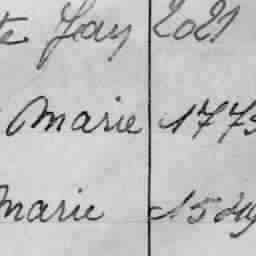 te Jay 2021
Marie 1773
Marie 15